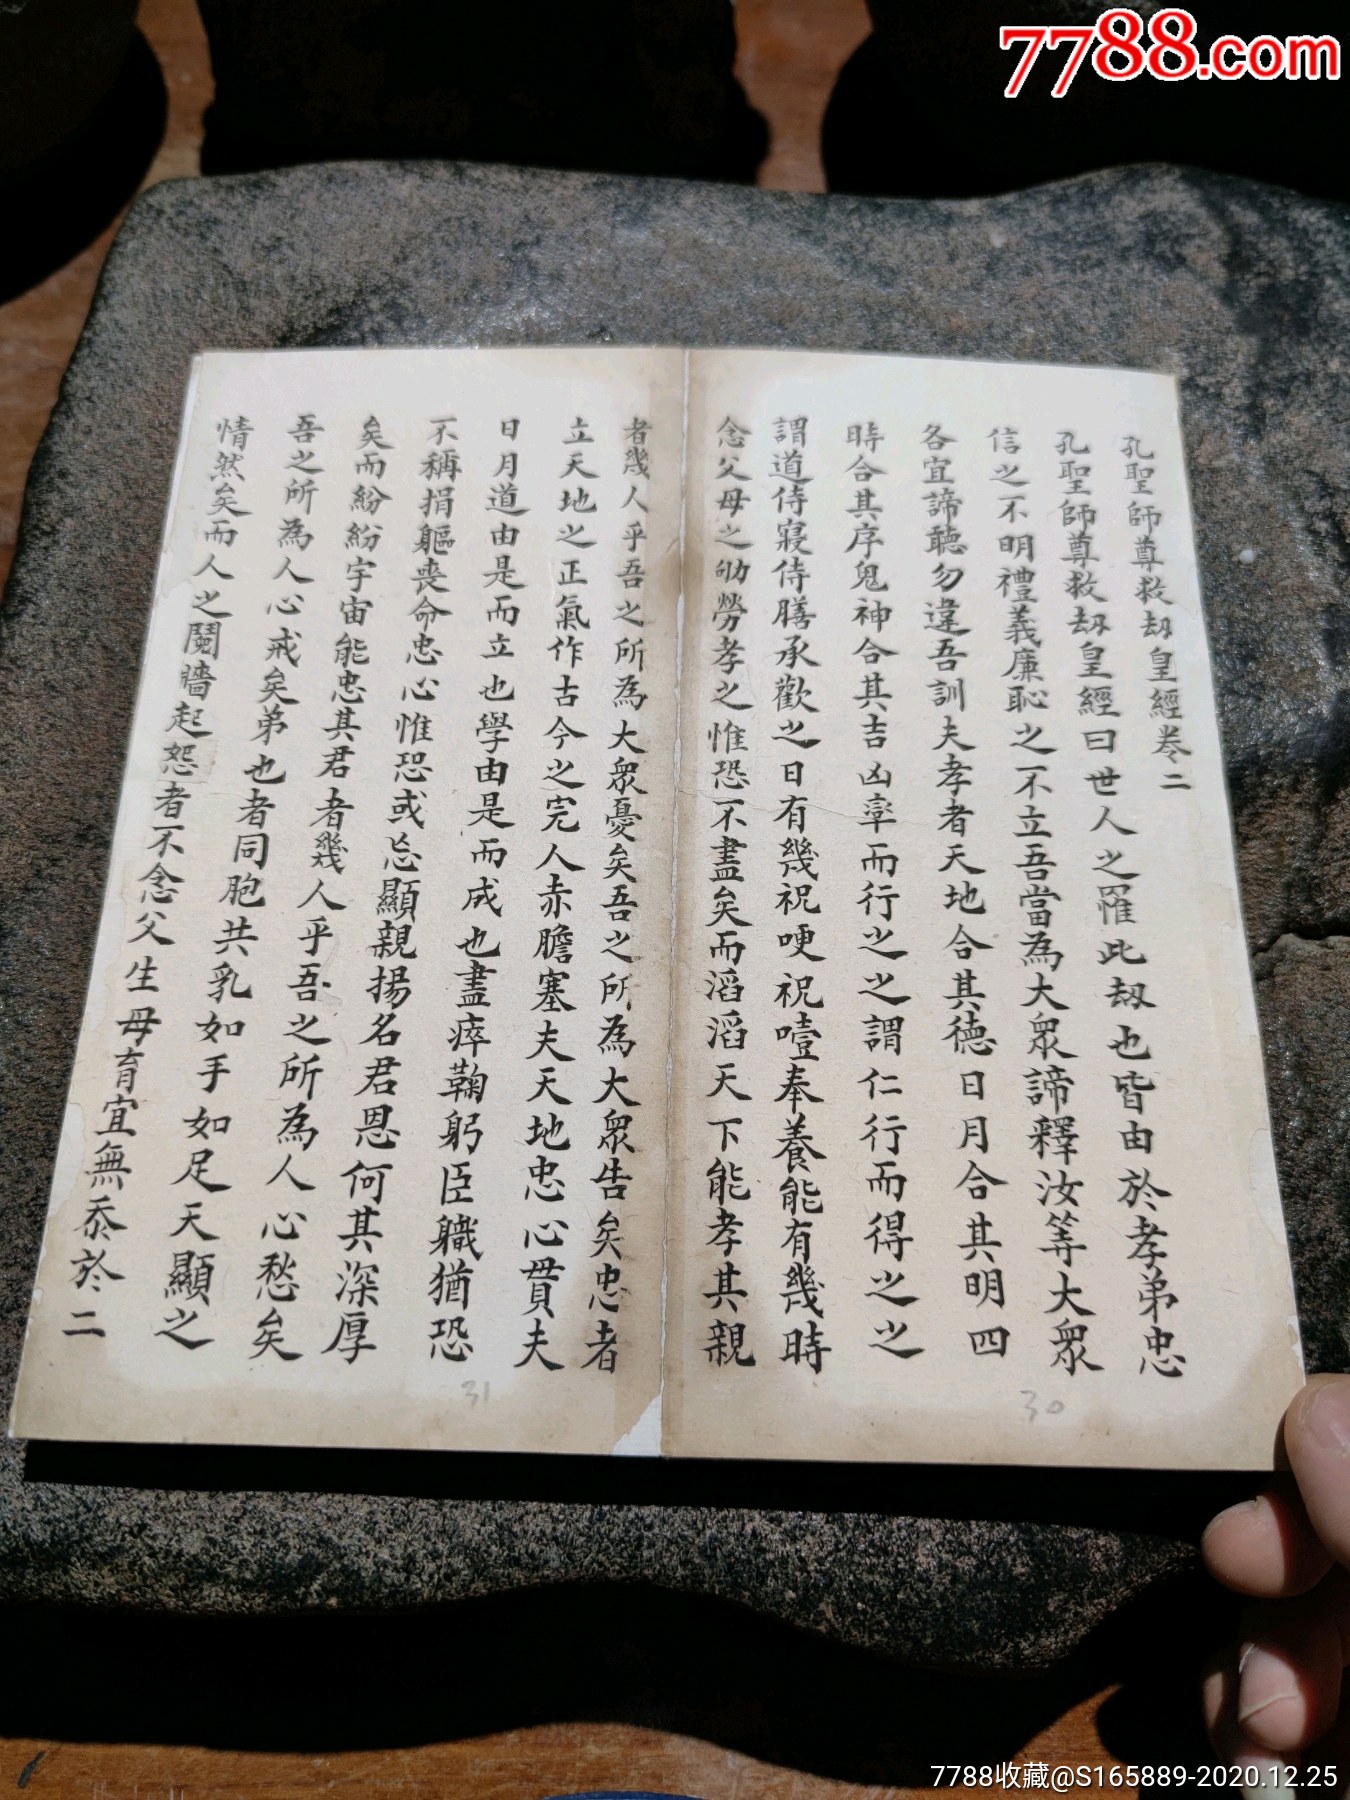 7788.com
孔聖師尊救劫皇經卷二
孔聖師尊救劫皇經曰世人之罹此劫也皆由於孝弟忠
信之不明禮義廉恥之不立吾當為大衆諦釋汝等大衆
各宜諦聽勿違吾訓夫孝者天地合其德日月合其明四
時合其序鬼神合其吉凶率而行之之謂仁行而得之之
謂道侍寢侍膳承歡之日有幾祝哽祝噎奉養能有幾時
念父母之劬勞孝之惟恐不盡矣而滔滔天下能孝其親
者幾人乎吾之所為大衆憂矣吾之所為大衆告矣忠者
立天地之正氣作古今之完人赤膽塞夫天地忠心貫夫
日月道由是而立也學由是而成也盡瘁鞠躬臣職猶恐
不稱捐軀喪命忠心惟恐或忘顯親揚名君恩何其深厚
矣而紛紛宇宙能忠其君者幾人乎吾之所為人心愁矣
吾之所為人心戒矣弟也者同胞共乳如手如足天顯之
情然矣而人之鬩牆起怨者不念父生母育宜無忝於二
30
31
7788收藏@S165889-2020.12.25